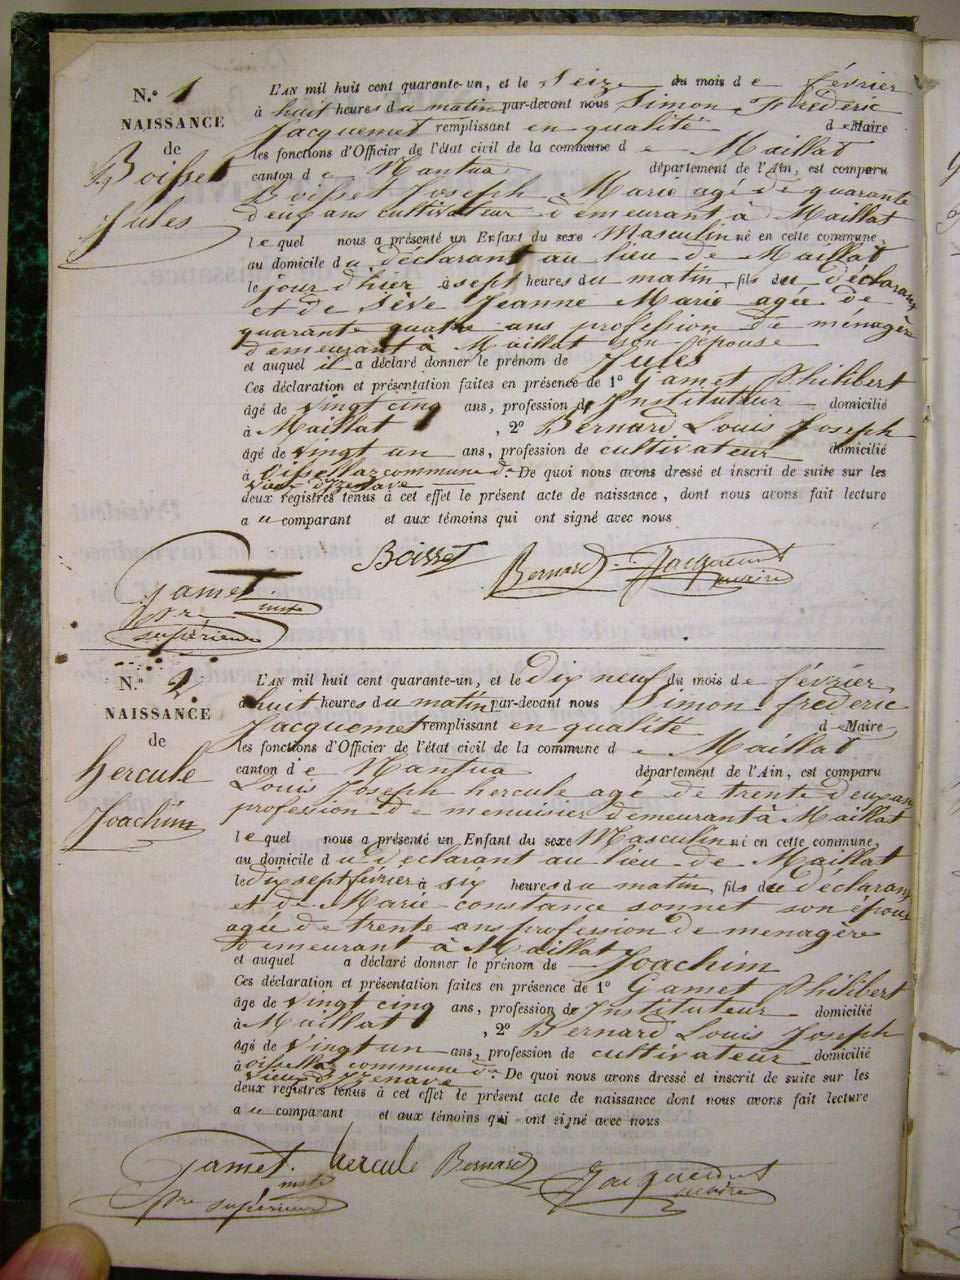 N.º 1
NAISSANCE
de
Boisset
Jules
L'AN mil huit cent quarante-un, et le Seize du mois de février
à huit heures du matin par-devant nous Simon Frédéric
Jacquemet remplissant en qualité de Maire
les fonctions d'Officier de l'état civil de la commune de Maillat
canton de Nantua département de l'Ain, est comparu
Boisset Joseph Marie agé de quarante
deux ans cultivateur demeurant à Maillat
lequel nous a présenté un Enfant du sexe Masculin né en cette commune,
au domicile du déclarant au lieu de Maillat
le jour d'hier à sept heures du matin, fils du déclarant
et de Sève Jeanne Marie agée de
quarante quatre ans profession de ménagère
demeurant à Maillat son épouse
et auquel il a déclaré donner le prénom de Jules
Ces déclaration et présentation faites en présence de 1º Gamet Philibert
âgé de vingt cinq ans, profession de Instituteur domicilié
à Maillat , 2º Bernard Louis Joseph
âgé de vingt un ans, profession de cultivateur domicilié
à Oisellaz commune de De quoi nous avons dressé et inscrit de suite sur les
Vieux d'Izenave
deux registres tenus à cet effet le présent acte de naissance, dont nous avons fait lecture
au comparant et aux témoins qui ont signé avec nous
Boisset
Bernard
Jacquemet
maire
Gamet
inst.
supérieur
N.º 2
NAISSANCE
de
hercule
Joachim
L'AN mil huit cent quarante-un, et le dix neuf du mois de février
à huit heures du matin par-devant nous Simon frédéric
Jacquemet remplissant en qualité de Maire
les fonctions d'Officier de l'état civil de la commune de Maillat
canton de Nantua département de l'Ain, est comparu
Louis Joseph hercule agé de trente deux ans
profession de menuisier demeurant à Maillat
lequel nous a présenté un Enfant du sexe Masculin né en cette commune,
au domicile du déclarant au lieu de Maillat
le dix sept février à six heures du matin, fils du déclarant
et de Marie constance sonnet son épouse
agée de trente ans profession de menagère
demeurant à Maillat
et auquel a déclaré donner le prénom de Joachim
Ces déclaration et présentation faites en présence de 1º Gamet Philibert
âge de vingt cinq ans, profession de Instituteur domicilié
à Maillat , 2º Bernard Louis Joseph
âgé de vingt un ans, profession de cultivateur domicilié
à oisellaz commune de De quoi nous avons dressé et inscrit de suite sur les
Vieux d'Izenave
deux registres tenus à cet effet le présent acte de naissance dont nous avons fait lecture
au comparant et aux témoins qui ont signé avec nous
Gamet hercule Bernard Jacquemet
inst. maire
supérieur